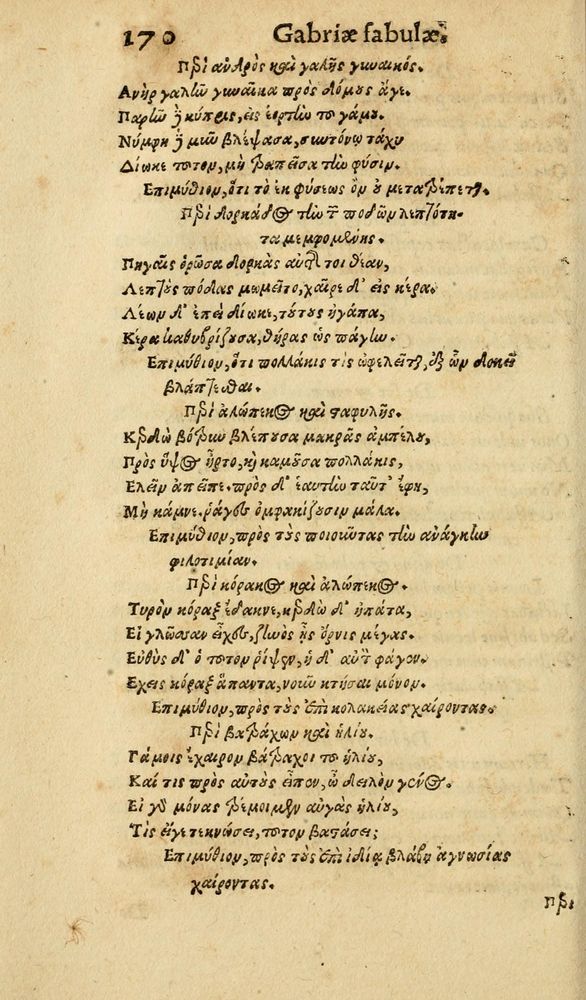 170 Gabriæ fabulæ.
Περὶ ἀνδρὸς καὶ γαλῆς γυναικός.
Ἀνὴρ γαλῶ γυναῖκα πρὸς δόμους ἄγε.
Παρῶ ἡ κύπρις, εἰς ἑορτὼ τοῦ γάμου.
Νύμφη ἡ μῦν βλέψασα, συντόνῳ τάχυ
Δίωκε τοῦτον, μὴ τραπεῖσα τὼ φύσιν.
Ἐπιμύθιον, ὅτι τὸ ἐκ φύσεως ὂν οὐ μετατρέπεται.
Περὶ δορκάδος τὼ τῶν ποδῶν λεπτότη-
τα μεμφομένης.
Πηγαῖς ὁρῶσα δορκὰς αὐτοῦ θέαν,
Λεπτοὺς πόδας μωμεῖτο, χαῖρε δ' εἰς κέρα.
Λέων δ' ἐπεὶ δίωκε, τούτους ἠγάπα,
Κέρα καθυβρίζουσα, θήρας ὡς πάγλω.
Ἐπιμύθιον, ὅτι πολλάκις τὶς ὠφελεῖται, ἐξ ὧν δοκεῖ
βλάπτεσθαι.
Περὶ ἀλώπεκος καὶ σταφυλῆς.
Κερδὼ βότρυν βλέπουσα μακρᾶς ἀμπέλου,
Πρὸς ὕψος ἦρτο, καὶ καμοῦσα πολλάκις,
Ἑλεῖν ἀπεῖπε. πρὸς δ' ἑαυτὼ ταῦτ' ἔφη,
Μὴ κάμνε. ῥάγες ὀμφακίζουσιν μάλα.
Ἐπιμύθιον, πρὸς τοὺς ποιοῦντας τὼ ἀνάγκλω
φιλοτιμίαν.
Περὶ κόρακος καὶ ἀλώπεκος.
Τυρὸν κόραξ ἔδακνε, κερδὼ δ' ἠπάτα,
Εἰ γλῶσσαν εἶχες, ζωὸς ἦς ὄρνις μέγας.
Εὐθὺς δ' ὁ τοῦτον ῥίψεν, ἡ δ' αὐτὸν φάγεν.
Ἔχεις κόραξ ἅπαντα, νοῦν κτῆσαι μόνον.
Ἐπιμύθιον, πρὸς τοὺς ἐπὶ κολακείας χαίροντας.
Περὶ βατράχων καὶ ἡλίου.
Γάμοις ἔχαιρον βάτραχοι τοῦ ἡλίου,
Καί τις πρὸς αὐτοὺς εἶπεν, ὦ δειλὸν γένος.
Εἰ γὰρ μόνας τρέμοιμεν αὐγὰς ἡλίου,
Τὶς εἴγε τεκνώσει, τοῦτον βαστάσει;
Ἐπιμύθιον, πρὸς τοὺς ἐπὶ ἰδίᾳ βλάβῃ ἀγνωσίας
χαίροντας.
Περὶ